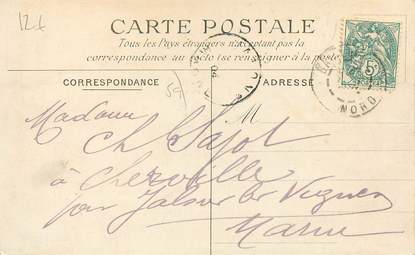 12 f
CARTE POSTALE
Tous les Pays étrangers n'acceptent pas la
correspondance au recto (se renseigner à la poste)
CORRESPONDANCE
ADRESSE
5c
NORD
59
M
Madame
Ch Sajot
à Cherville
par Jalons les Vignes
Marne